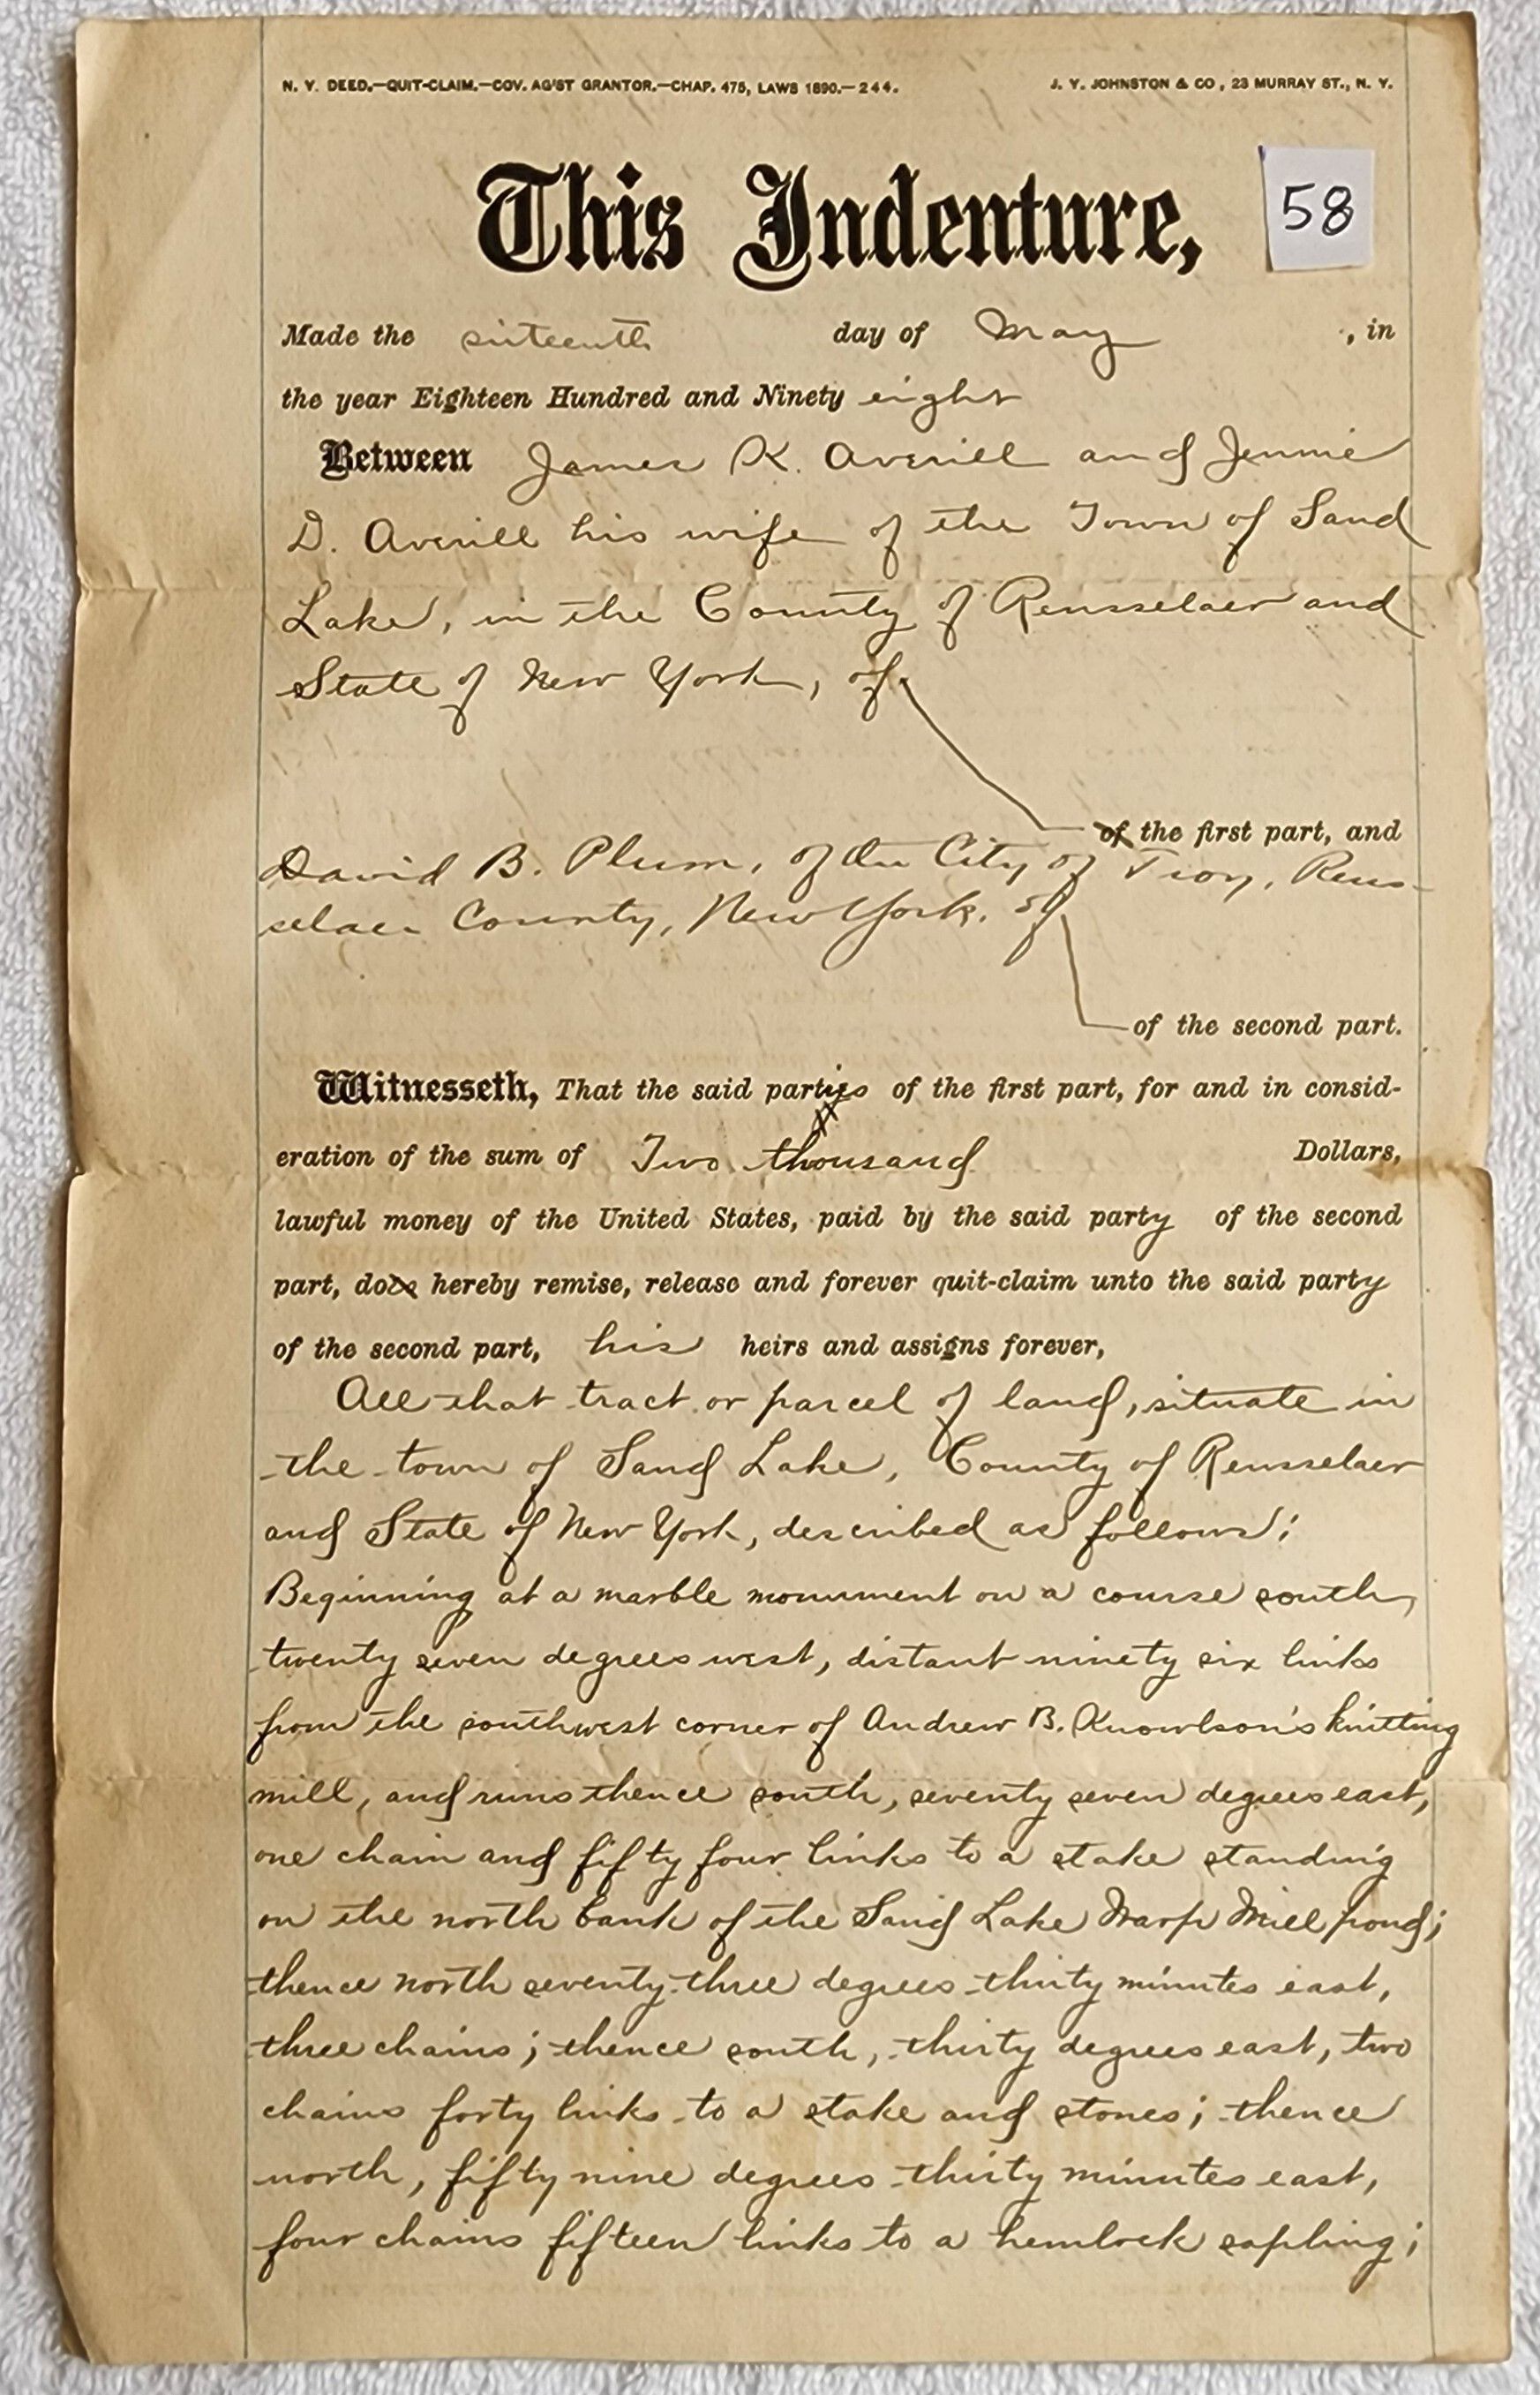 N. Y. DEED.—QUIT-CLAIM.—COV. AG'ST GRANTOR.—CHAP. 475, LAWS 1890.—244. J. Y. JOHNSTON & CO, 23 MURRAY ST., N. Y.
This Indenture,
58
Made the sixteenth day of May , in
the year Eighteen Hundred and Ninety eight
Between James K. Averill and Jennie
D. Averill his wife of the Town of Sand
Lake, in the County of Rensselaer and
State of New York, of
of the first part, and
David B. Plum, of the City of Troy, Rens-
selaer County, New York. of
of the second part.
Witnesseth, That the said parties of the first part, for and in consid-
eration of the sum of Two thousand Dollars,
lawful money of the United States, paid by the said party of the second
part, does hereby remise, release and forever quit-claim unto the said party
of the second part, his heirs and assigns forever,
All that tract or parcel of land, situate in
the town of Sand Lake, County of Rensselaer
and State of New York, described as follows;
Beginning at a marble monument on a course south,
twenty seven degrees west, distant ninety six links
from the southwest corner of Andrew B. Knowlson's knitting
mill, and runs thence south, seventy seven degrees east,
one chain and fifty four links to a stake standing
on the north bank of the Sand Lake Warp Mill pond;
thence north seventy three degrees thirty minutes east,
three chains; thence south, thirty degrees east, two
chains forty links to a stake and stones; thence
north, fifty nine degrees thirty minutes east,
four chains fifteen links to a hemlock sapling;